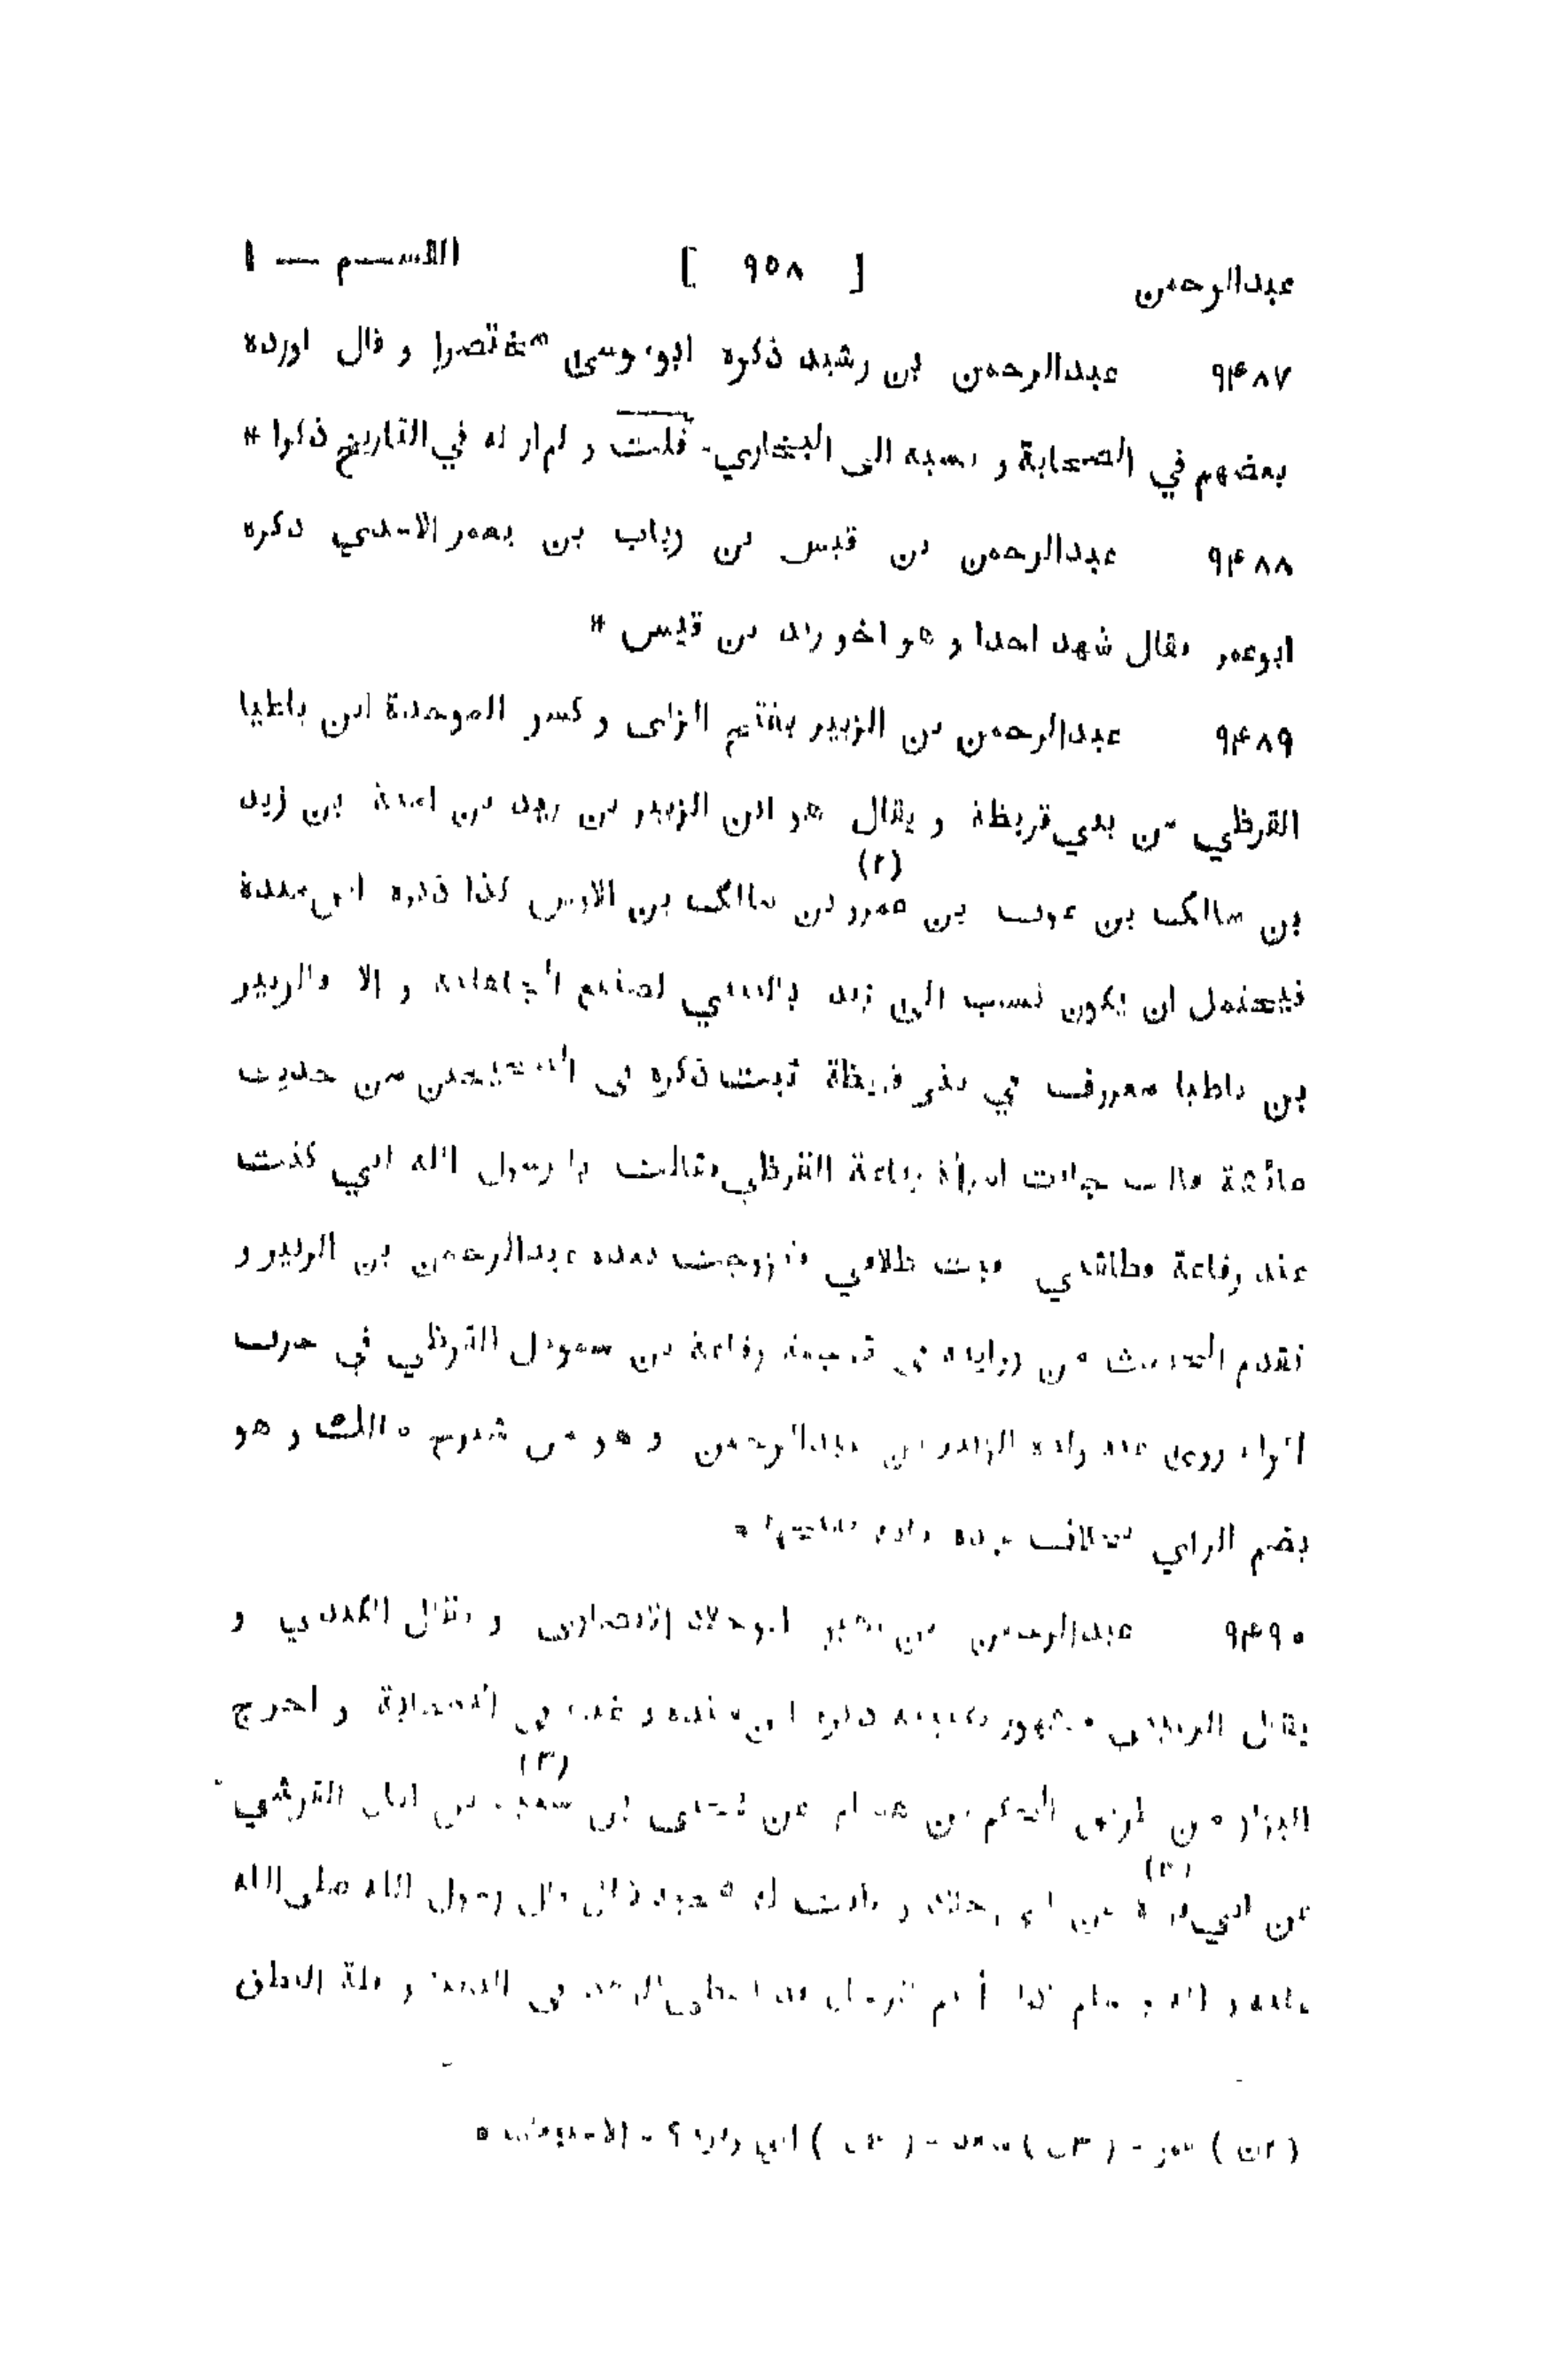 عبدالرحمن [ ٩٥٨ ] القسم — ١
٩٤٨٧ عبدالرحمن بن رشيد ذكره ابوموسى مختصرا و قال اورده
بعضهم في الصحابة و نسبه الى البخاري - قلت و لم ار له في التاريخ ذكرا *
٩٤٨٨ عبدالرحمن بن قيس بن رباب بن يعمر الاسدي ذكره
ابوعمر فقال شهد احدا و هو اخو زيد بن قيس *
٩٤٨٩ عبدالرحمن بن الزبير بفتح الزاى و كسر الموحدة ابن باطيا
القرظي من بني قريظة و يقال هو ابن الزبير بن زيد بن امية بن زيد
بن مالك بن عوف بن عمرو (٢) بن مالك بن الاوس كذا ذكره ابن مندة
فيحتمل ان يكون نسب الى زيد بالتبني لصنيع الجاهلية و الا فالزبير
بن باطيا معروف في بني قريظة ثبت ذكره فى الصحيحين من حديث
عائشة قالت جاءت امرأة رفاعة القرظي فقالت يا رسول الله اني كنت
عند رفاعة فطلقني فبت طلاقي فتزوجت بعده عبدالرحمن بن الزبير و
تقدم الحديث من روايته في ترجمة رفاعة بن سموءل القرظي في حرف
الراء روى عنه ولده الزبير بن عبدالرحمن و هو من شيوخ مالك و هو
بضم الزاي بخلاف جده فانه بفتحها *
٩٤٩٠ عبدالرحمن بن زهير ابو خلاد الانصارى و يقال الكندي و
يقال الرعيني مشهور بكنيته ذكره ابن منده و غيره في الصحابة و اخرج
البزار من طريق الحكم بن هشام عن يحيى بن سعيد (٣) بن ابان القرشي
عن ابي فروة (٤) عن ابي خلاد و كانت له صحبة قال قال رسول الله صلى الله
عليه و آله و سلم اذا رأيتم الرجل قد اعطي الزهد فى الدنيا و قلة النطق
( ٢ن ) عمر - ( ٣ن ) سعد - ( ٤ن ) ابي